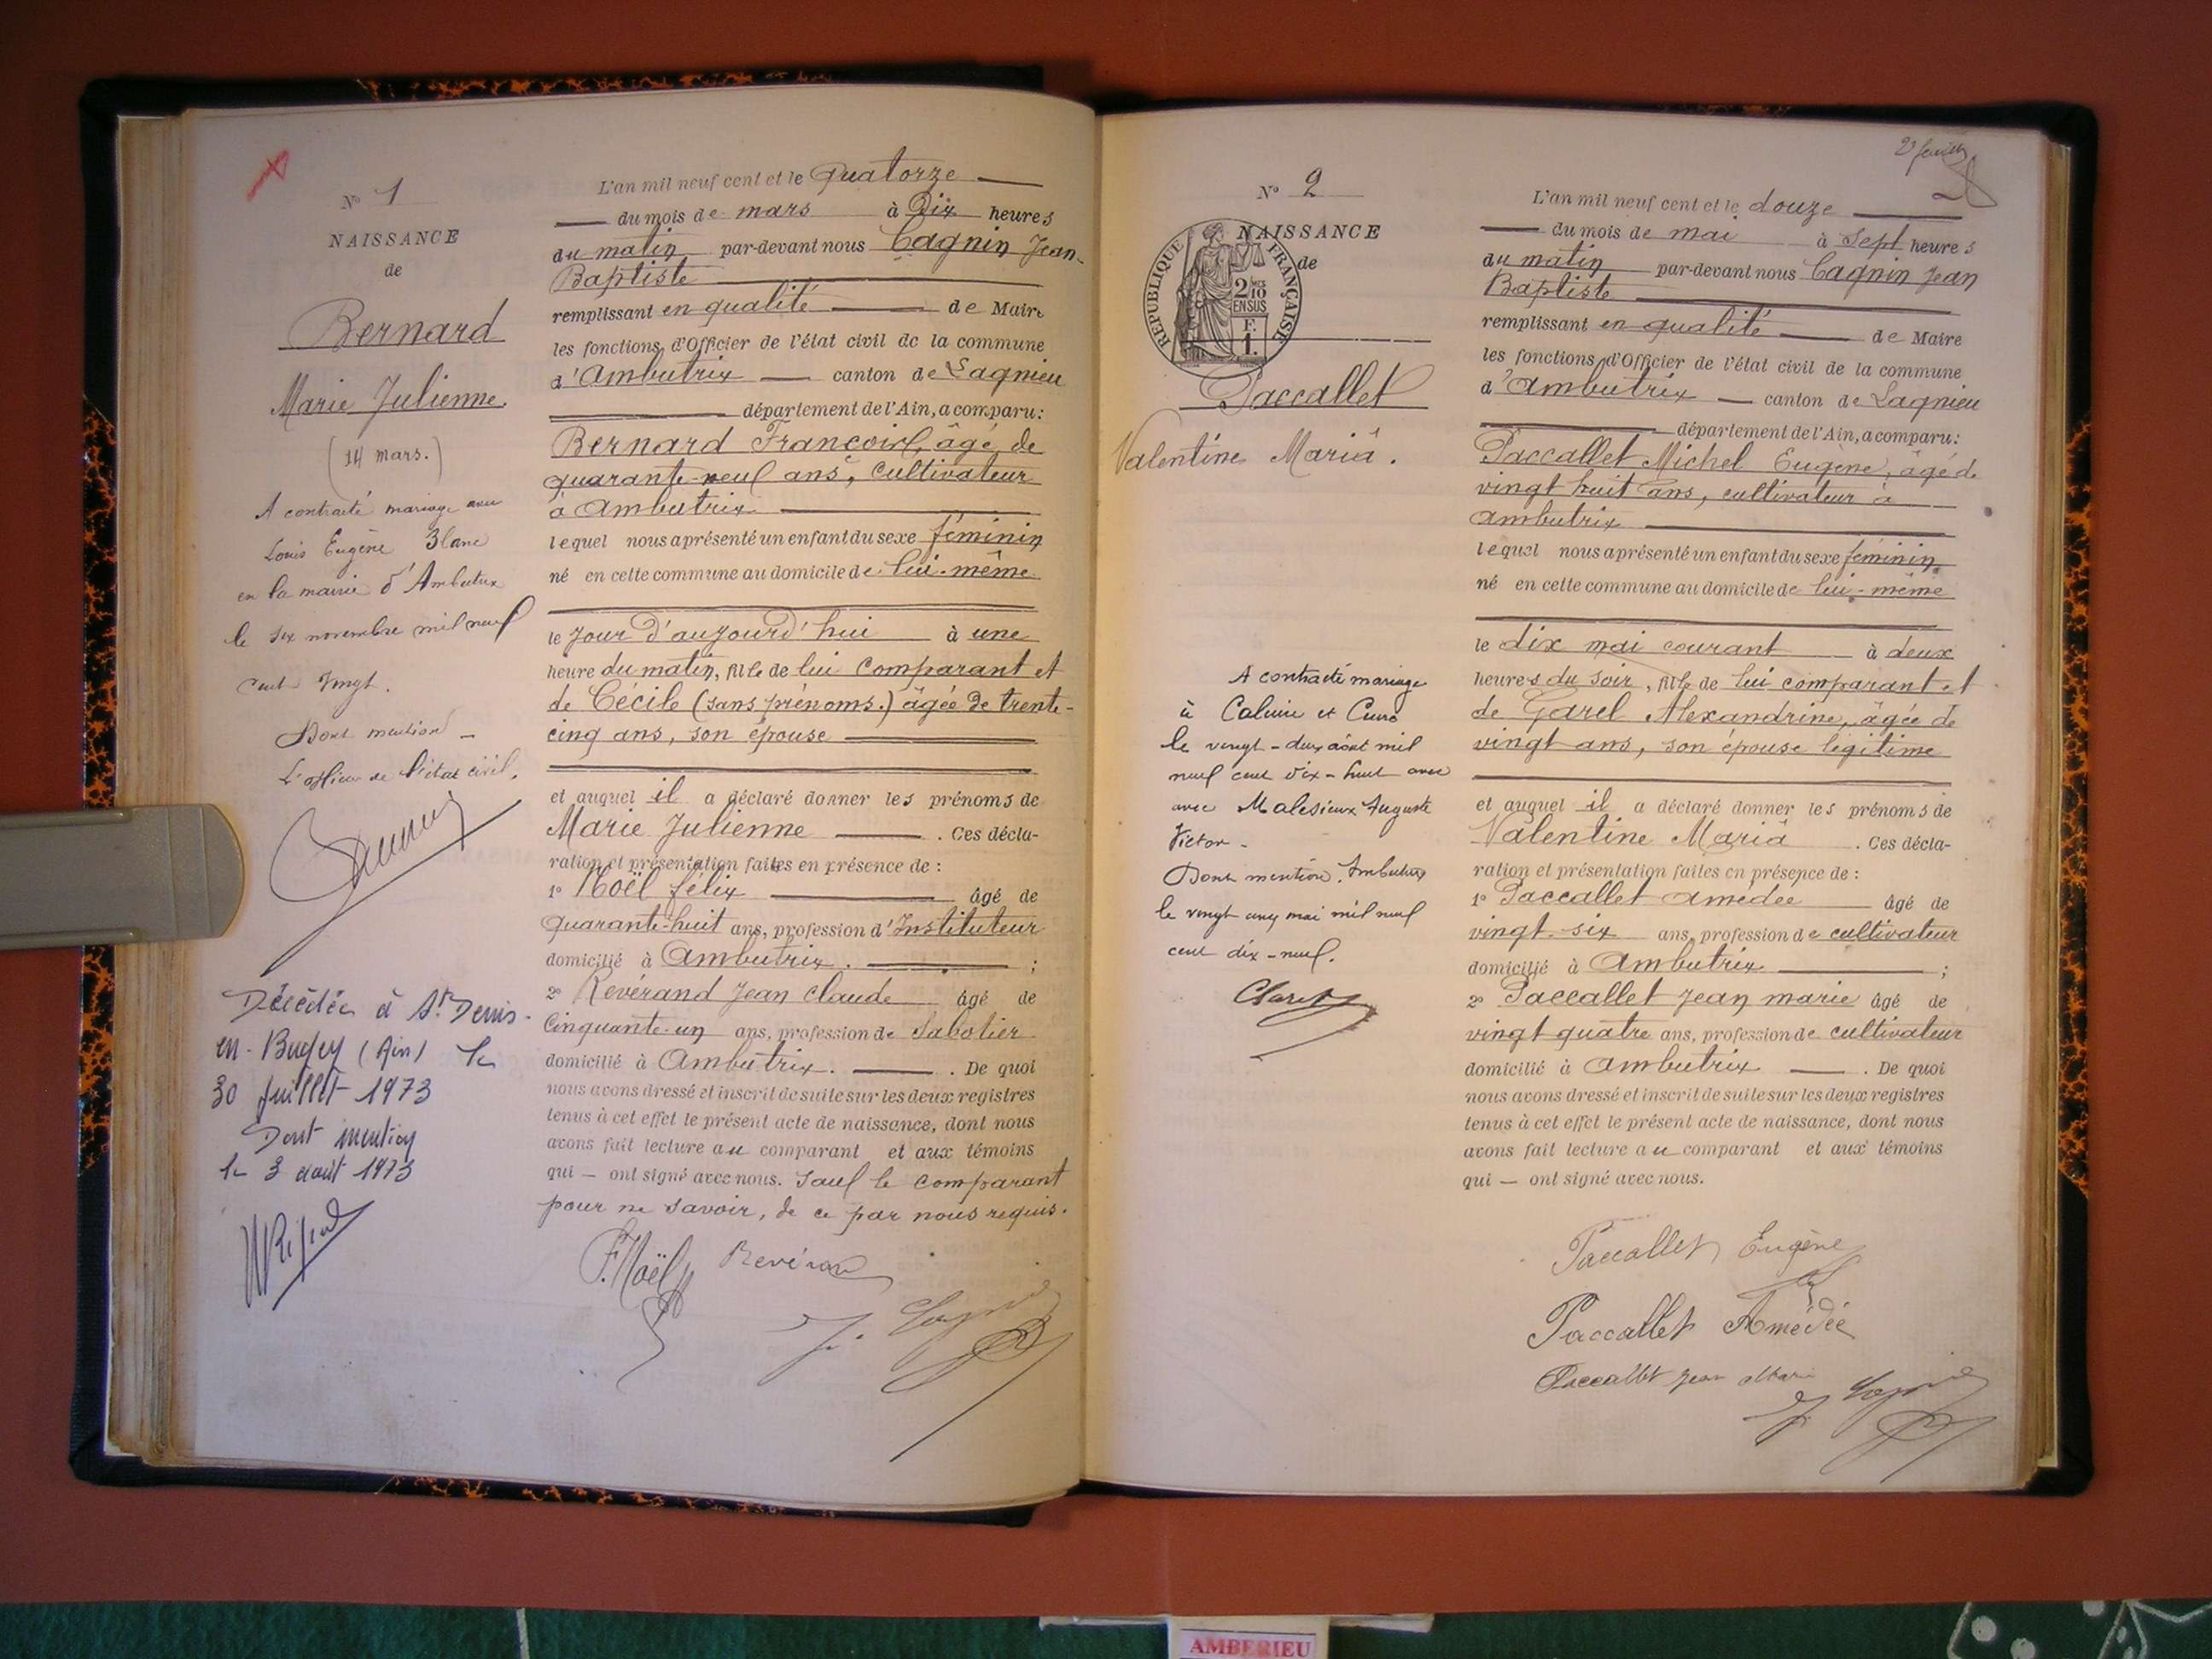 N° 1
NAISSANCE
de
Bernard
Marie Julienne.
(14 mars.)
A contracté mariage avec
Louis Eugène Blanc
en la mairie d'Ambutrix
le six novembre mil neuf
cent vingt.
Dont mention _
L'officier de l'état civil.
Décédée à St. Denis-
en-Bugey (Ain) le
30 Juillet 1973
Dont mention
le 3 août 1973
L'an mil neuf cent et le quatorze
du mois de mars à Dix heures
du matin par-devant nous Cagnin Jean-
Baptiste
remplissant en qualité de Maire
les fonctions d'Officier de l'état civil de la commune
d'Ambutrix canton de Lagnieu
département de l'Ain, a comparu:
Bernard François, âgé de
quarante-neuf ans, cultivateur
à Ambutrix
lequel nous a présenté un enfant du sexe féminin
né en cette commune au domicile de lui-même
le jour d'aujourd'hui à une
heure du matin, fille de lui comparant et
de Cécile (sans prénoms.) âgée de trente-
cinq ans, son épouse
et auquel il a déclaré donner les prénoms de
Marie Julienne . Ces décla-
ration et présentation faites en présence de :
1° Noël félix âgé de
quarante-huit ans, profession d'Instituteur
domicilié à Ambutrix. ;
2° Revérand Jean Claude âgé de
Cinquante-un ans, profession de Sabotier
domicilié à Ambutrix. . De quoi
nous avons dressé et inscrit de suite sur les deux registres
tenus à cet effet le présent acte de naissance, dont nous
avons fait lecture au comparant et aux témoins
qui — ont signé avec nous. Sauf le comparant
pour ne savoir, de ce par nous requis.
F. Noël Reverand
23 feuillet
N° 2
NAISSANCE
de
REPUBLIQUE FRANÇAISE
2/10 MES
EN SUS
F.
1.
Paccallet
Valentine Maria.
A contracté mariage
à Caluire et Cuire
le vingt-deux août mil
neuf cent dix-huit avec
avec Malesieux Auguste
Victor -
Dont mention. Ambutrix
le vingt cinq mai mil neuf
cent dix-neuf.
L'an mil neuf cent et le douze
du mois de mai à Sept heures
du matin par-devant nous Cagnin Jean
Baptiste
remplissant en qualité de Maire
les fonctions d'Officier de l'état civil de la commune
d'Ambutrix canton de Lagnieu
département de l'Ain, a comparu:
Paccallet Michel Eugène, âgé de
vingt huit ans, cultivateur à
Ambutrix
lequel nous a présenté un enfant du sexe féminin
né en cette commune au domicile de lui-même
le dix mai courant à deux
heures du soir, fille de lui comparant et
de Garel Alexandrine, âgée de
vingt ans, son épouse légitime
et auquel il a déclaré donner les prénoms de
Valentine Maria . Ces décla-
ration et présentation faites en présence de :
1° Paccallet amédée âgé de
vingt-six ans, profession de cultivateur
domicilié à Ambutrix ;
2° Paccallet Jean marie âgé de
vingt quatre ans, profession de cultivateur
domicilié à Ambutrix . De quoi
nous avons dressé et inscrit de suite sur les deux registres
tenus à cet effet le présent acte de naissance, dont nous
avons fait lecture au comparant et aux témoins
qui — ont signé avec nous.
Paccallet Eugène
Paccallet Amédée
Paccallet Jean Marie
AMBERIEU